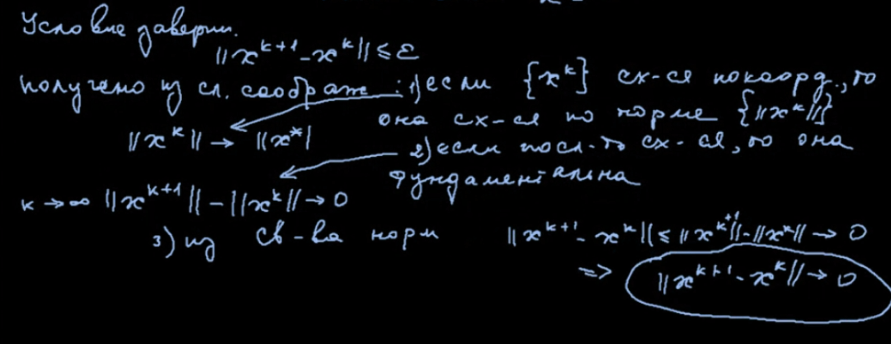 Условие заверш.
||x^{k+1} - x^k|| ≤ ε
получено из сл. соображ: 1) если {x^k} сх-ся покоорд., то
она сх-ся по норме {||x^k||}
||x^k|| → ||x*||
2) если посл-ть сх-ся, то она
фундаментальна
k → ∞ ||x^{k+1}|| - ||x^k|| → 0
3) из св-ва норм ||x^{k+1} - x^k|| ≤ ||x^{k+1}|| - ||x^k|| → 0
=> ||x^{k+1} - x^k|| → 0